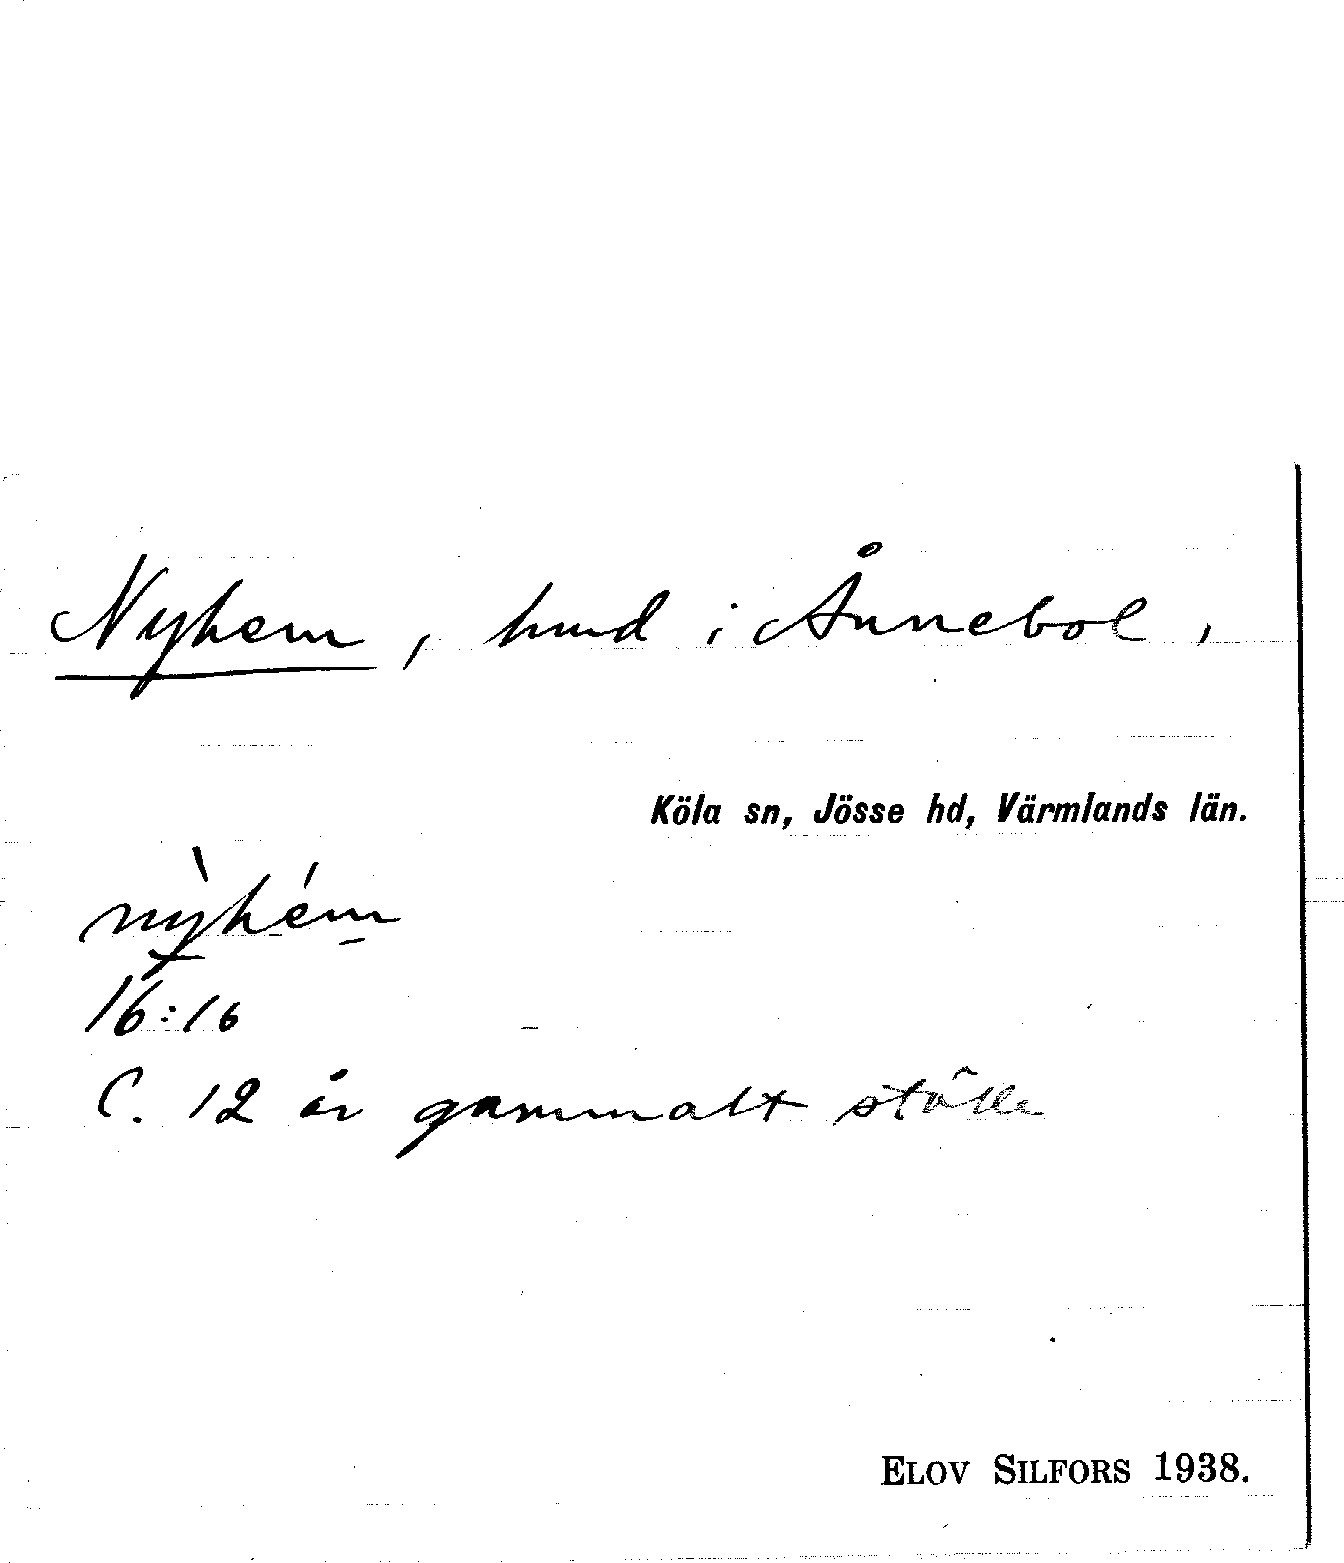 Nyhem, hmd i Ånnebol,
Köla sn, Jösse hd, Värmlands län.
nỳhém
16:16
C. 12 år gammalt ställe
ELOV SILFORS 1938.